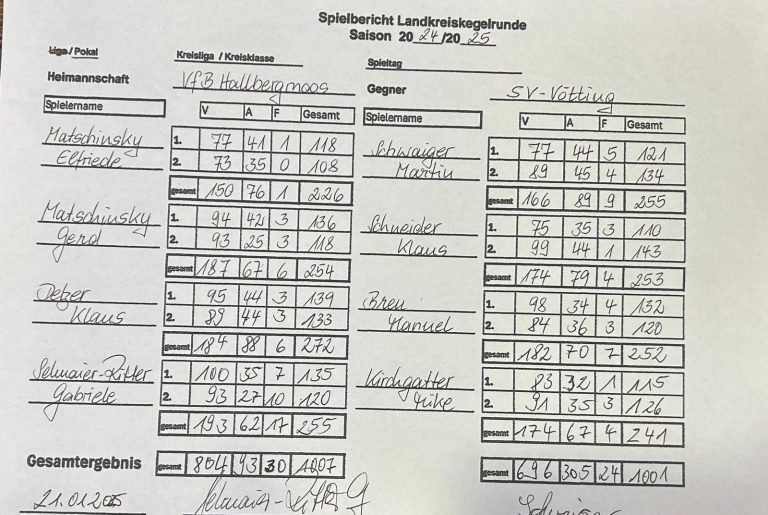 Spielbericht Landkreiskegelrunde
Saison 20 24 /20 25
Liga / Pokal Kreisliga / Kreisklasse Spieltag
Heimannschaft VfB Hallbergmoos Gegner SV-Vötting
Spielername V A F Gesamt Spielername V A F Gesamt
Matschinsky 1. 77 41 1 118 Schwaiger 1. 77 44 5 121
Elfriede 2. 73 35 0 108 Martin 2. 89 45 4 134
gesamt 150 76 1 226 gesamt 166 89 9 255
Matschinsky 1. 94 42 3 136 Schneider 1. 75 35 3 110
Gerd 2. 93 25 3 118 Klaus 2. 99 44 1 143
gesamt 187 67 6 254 gesamt 174 79 4 253
1. 95 44 3 139 Breu 1. 98 34 4 132
Klaus 2. 89 44 3 133 Manuel 2. 84 36 3 120
gesamt 184 88 6 272 gesamt 182 70 7 252
Selmaier-Ritter 1. 100 35 7 135 Kirchgatter 1. 83 32 1 115
Gabriele 2. 93 27 10 120 Mike 2. 91 35 3 126
gesamt 193 62 17 255 gesamt 174 67 4 241
Gesamtergebnis gesamt 93 30 1007 gesamt 696 305 24 1001
Selmaier-Ritter G